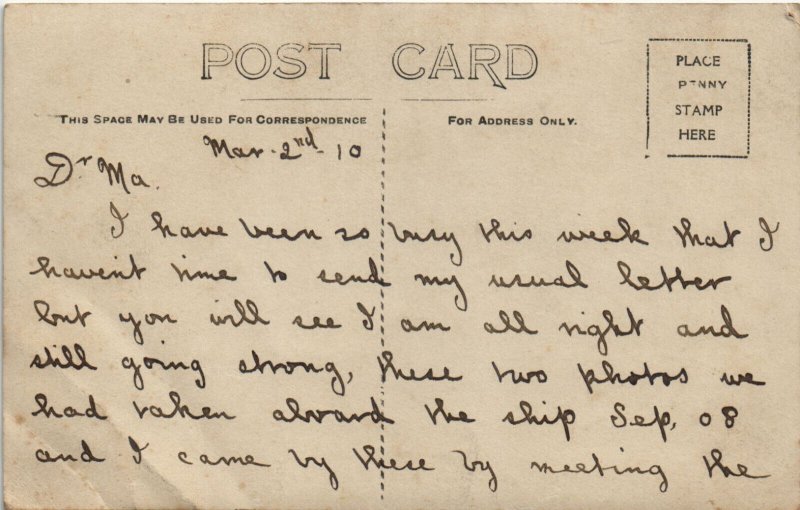 POST CARD
PLACE
PENNY
STAMP
HERE
THIS SPACE MAY BE USED FOR CORRESPONDENCE
FOR ADDRESS ONLY.
Mar. 2nd. 10
Dr Ma.
I have been so busy this week that I
haven't time to send my usual letter
but you will see I am all right and
still going strong, these two photos we
had taken aboard the ship Sep, 08
and I came by these by meeting the